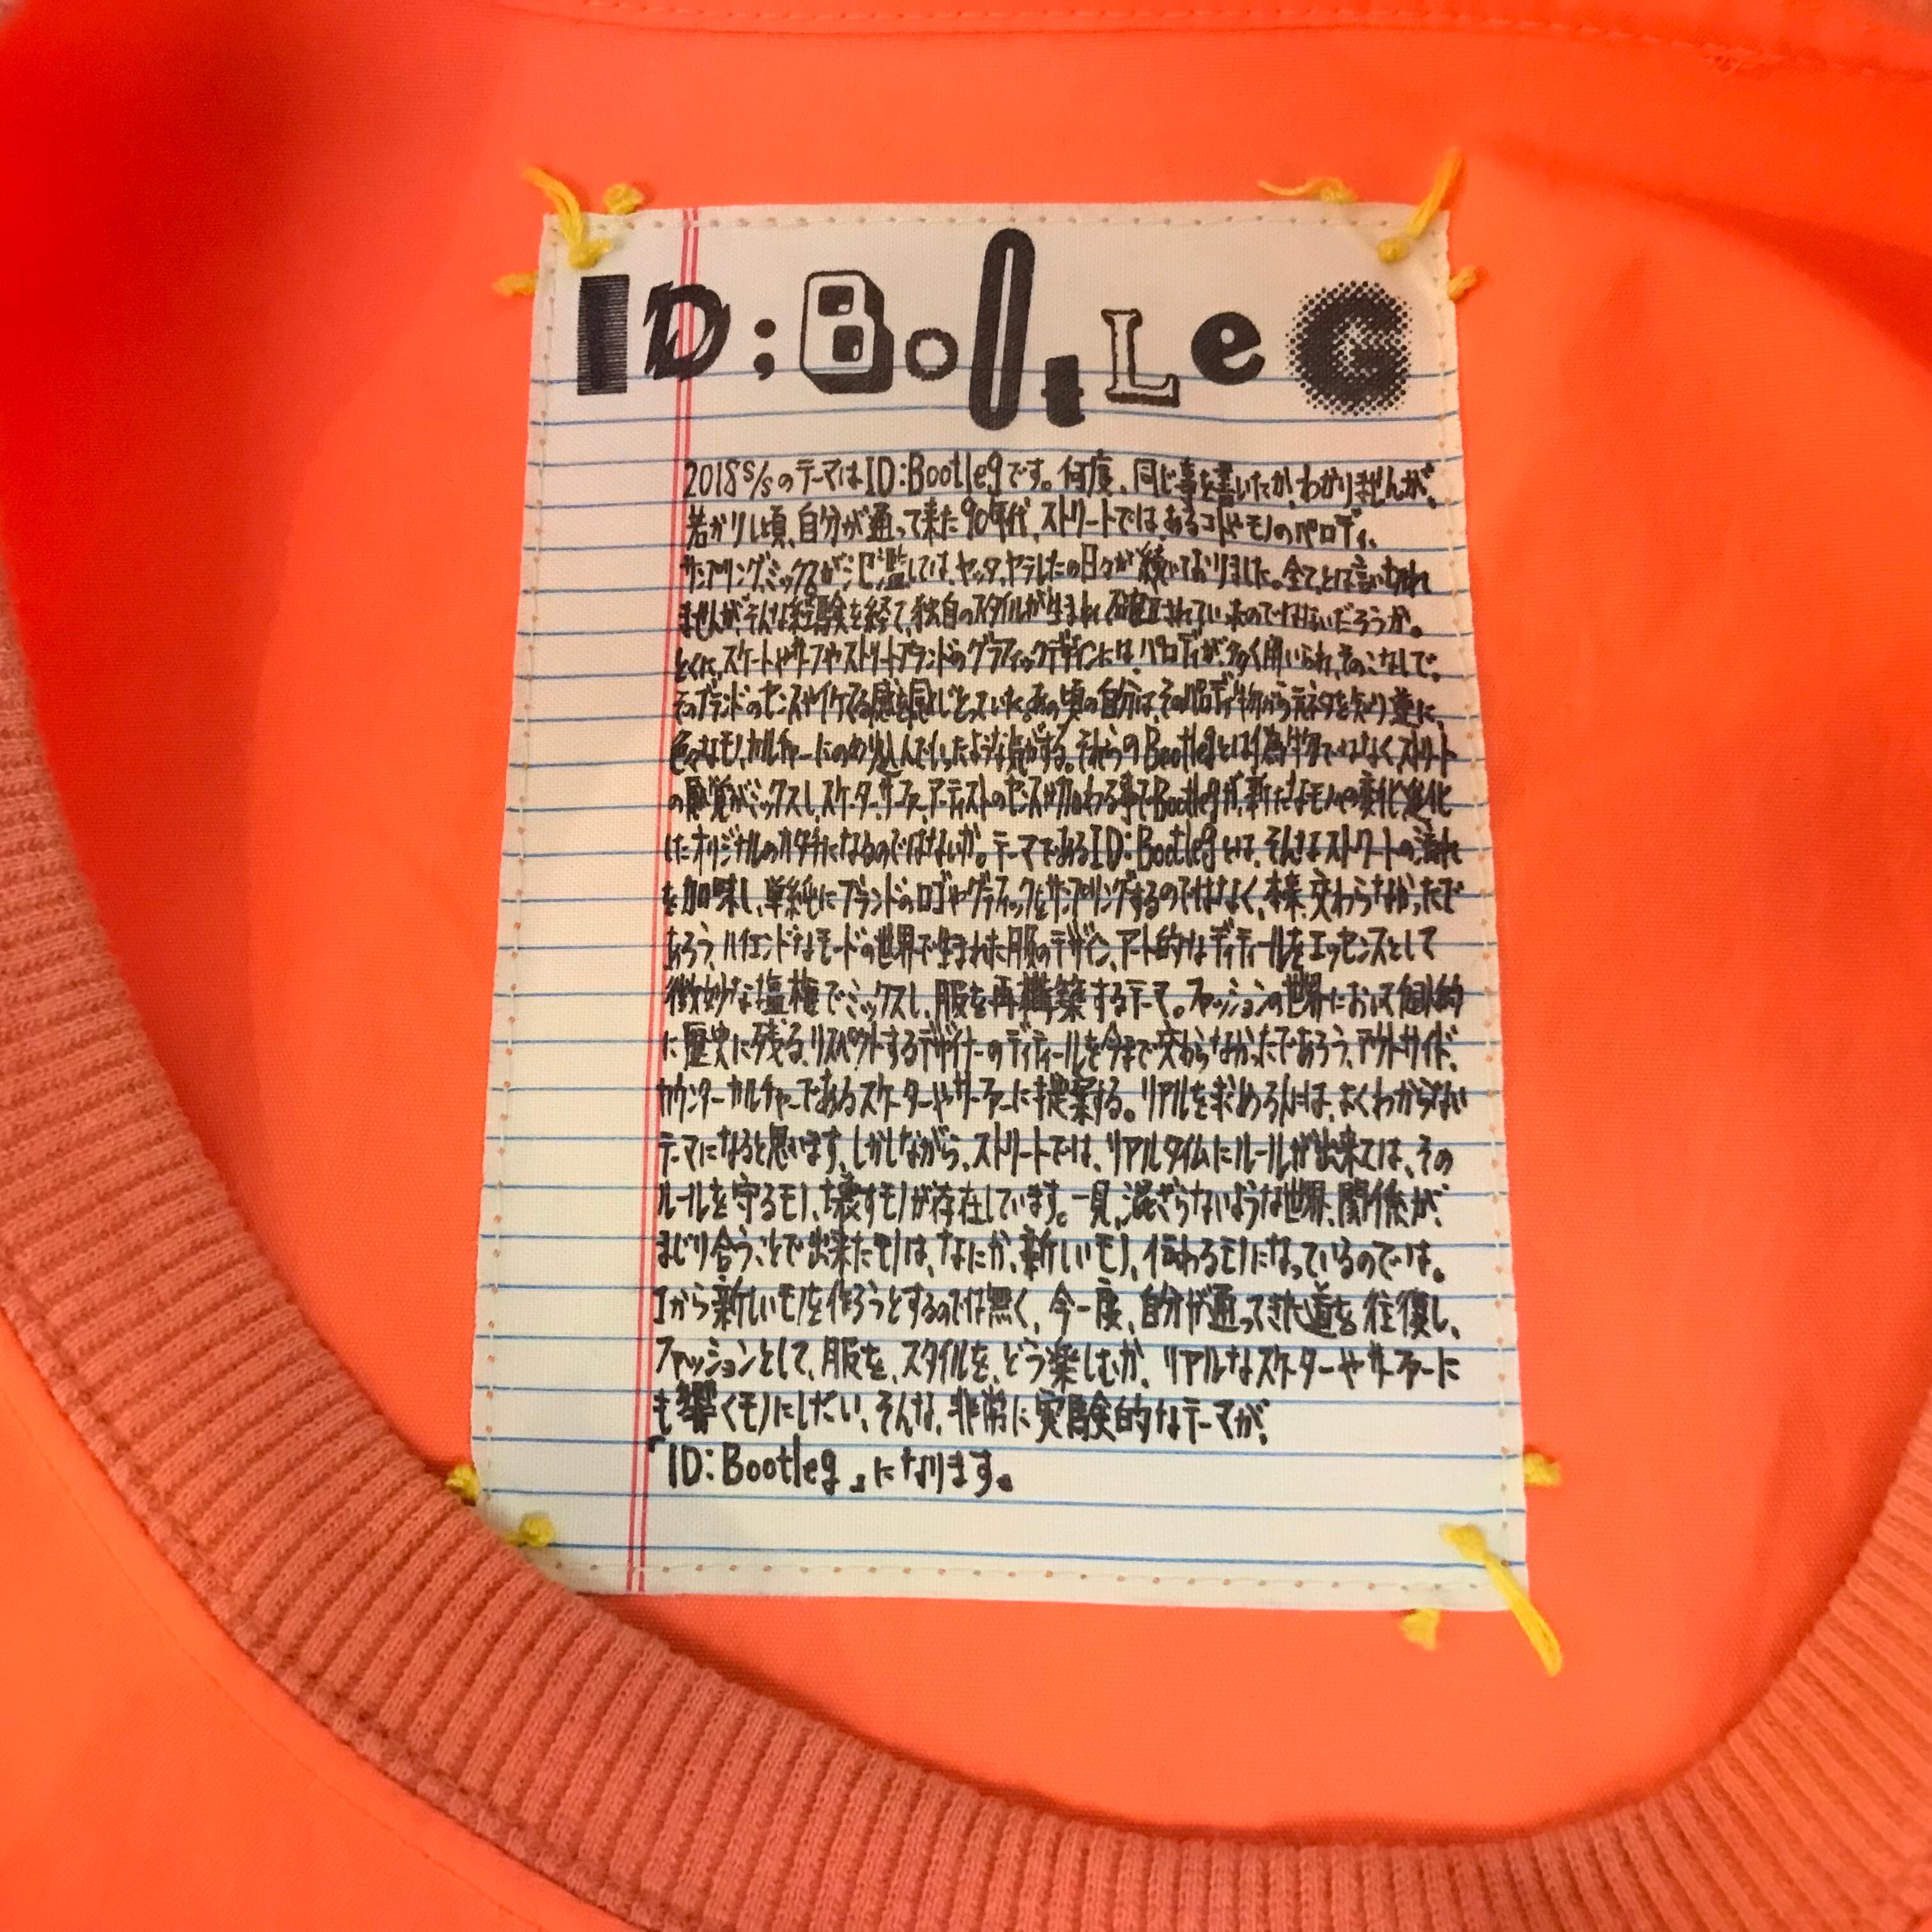 ID;BootLeG
2018 S/Sのテーマは ID:Bootlegです。何度、同じ事を書いたか、わかりませんが、
若かりし頃、自分が通って来た90年代、ストリートでは、あるコトやモノのパロディ、
サンプリング、ミックスが氾濫しては、ヤッタ、ヤラレたの日々が続いておりました。全て、とは言い切れ
ませんが、そんな経験を経て、独自のスタイルが生まれ、確立されていったのではないだろうか。
とくに、スケートやサーフやストリートブランドのグラフィックデザインには、パロディが多く用いられ、そのこなしで、
そのブランドのセンスやイケてる感を感じとっていた。あの頃の自分は、そのパロディ物から元ネタを知り、逆に、
色々なモノ、カルチャーにのめり込んでいったような気がする。それらのBootlegとは偽物ではなく、ストリート
の感覚がミックスし、スケーター、サーファー、アーティストのセンスが加わる事でBootlegが、新たなモノへの変化、進化
したオリジナルのカタチになるのではないか。テーマであるID:Bootlegとは、そんなストリートの流れ
を加味し、単純にブランドのロゴやグラフィックをサンプリングするのではなく、本来、交わらなかったで
あろう、ハイエンドなモードの世界で生まれた服のデザイン、アート的なディティールをエッセンスとして
微妙な塩梅でミックスし、服を再構築するテーマ。ファッションの世界において個人的
に歴史に残る、リスペクトするデザイナーのディティールを今まで交わらなかったであろう、アウトサイド、
カウンターカルチャーであるスケーターやサーファーに提案する。リアルを求める人には、よくわからない
テーマになると思います。しかしながら、ストリートでは、リアルタイムにルールが出来ては、その
ルールを守るモノ、壊すモノが存在しています。一見、混ざらないような世界、関係が、
まじり合うことで出来たモノは、なにか、新しいモノ、伝わるモノになっているのでは。
1から新しいモノを作ろうとするのでは無く、今一度、自分が通ってきた道を往復し、
ファッションとして、服を、スタイルを、どう楽しむか、リアルなスケーターやサーファーに
も響くモノにしたい、そんな、非常に実験的なテーマが、
「ID:Bootleg」になります。